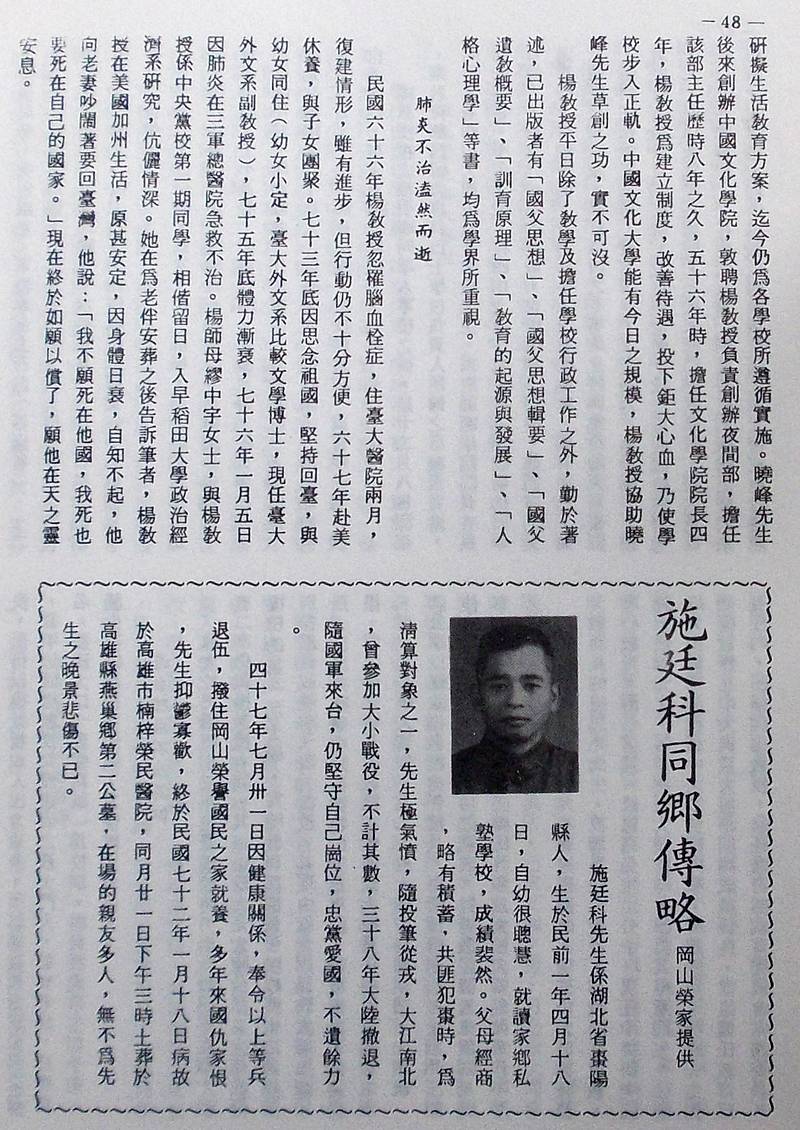 — 48 —
研擬生活教育方案，迄今仍爲各學校所遵循實施。曉峰先生
後來創辦中國文化學院，敦聘楊教授負責創辦夜間部，擔任
該部主任歷時八年之久，五十六年時，擔任文化學院院長四
年，楊教授爲建立制度，改善待遇，投下鉅大心血，乃使學
校步入正軌。中國文化大學能有今日之規模，楊教授協助曉
峰先生草創之功，實不可沒。
楊教授平日除了教學及擔任學校行政工作之外，勤於著
述，已出版者有「國父思想」、「國父思想輯要」、「國父
遺教概要」、「訓育原理」、「教育的起源與發展」、「人
格心理學」等書，均爲學界所重視。
肺炎不治溘然而逝
民國六十六年楊教授忽罹腦血栓症，住臺大醫院兩月，
復建情形，雖有進步，但行動仍不十分方便，六十七年赴美
休養，與子女團聚。七十三年底因思念祖國，堅持回臺，與
幼女同住（幼女小定，臺大外文系比較文學博士，現任臺大
外文系副教授），七十五年底體力漸衰，七十六年一月五日
因肺炎在三軍總醫院急救不治。楊師母繆中宇女士，與楊教
授係中央黨校第一期同學，相偕留日，入早稻田大學政治經
濟系研究，伉儷情深。她在爲老伴安葬之後告訴筆者，楊教
授在美國加州生活，原甚安定，因身體日衰，自知不起，他
向老妻吵鬧著要回臺灣，他說：「我不願死在他國，我死也
要死在自己的國家。」現在終於如願以償了，願他在天之靈
安息。
施廷科同鄉傳略
岡山榮家提供
施廷科先生係湖北省棗陽
縣人，生於民前一年四月十八
日，自幼很聰慧，就讀家鄉私
塾學校，成績裴然。父母經商
，略有積蓄，共匪犯棗時，爲
淸算對象之一，先生極氣憤，隨投筆從戎，大江南北
，曾參加大小戰役，不計其數，三十八年大陸撤退，
隨國軍來台，仍堅守自己崗位，忠黨愛國，不遺餘力
。
四十七年七月卅一日因健康關係，奉令以上等兵
退伍，撥住岡山榮譽國民之家就養，多年來國仇家恨
，先生抑鬱寡歡，終於民國七十二年一月十八日病故
於高雄市楠梓榮民醫院，同月廿一日下午三時土葬於
高雄縣燕巢鄉第二公墓，在場的親友多人，無不爲先
生之晚景悲傷不已。